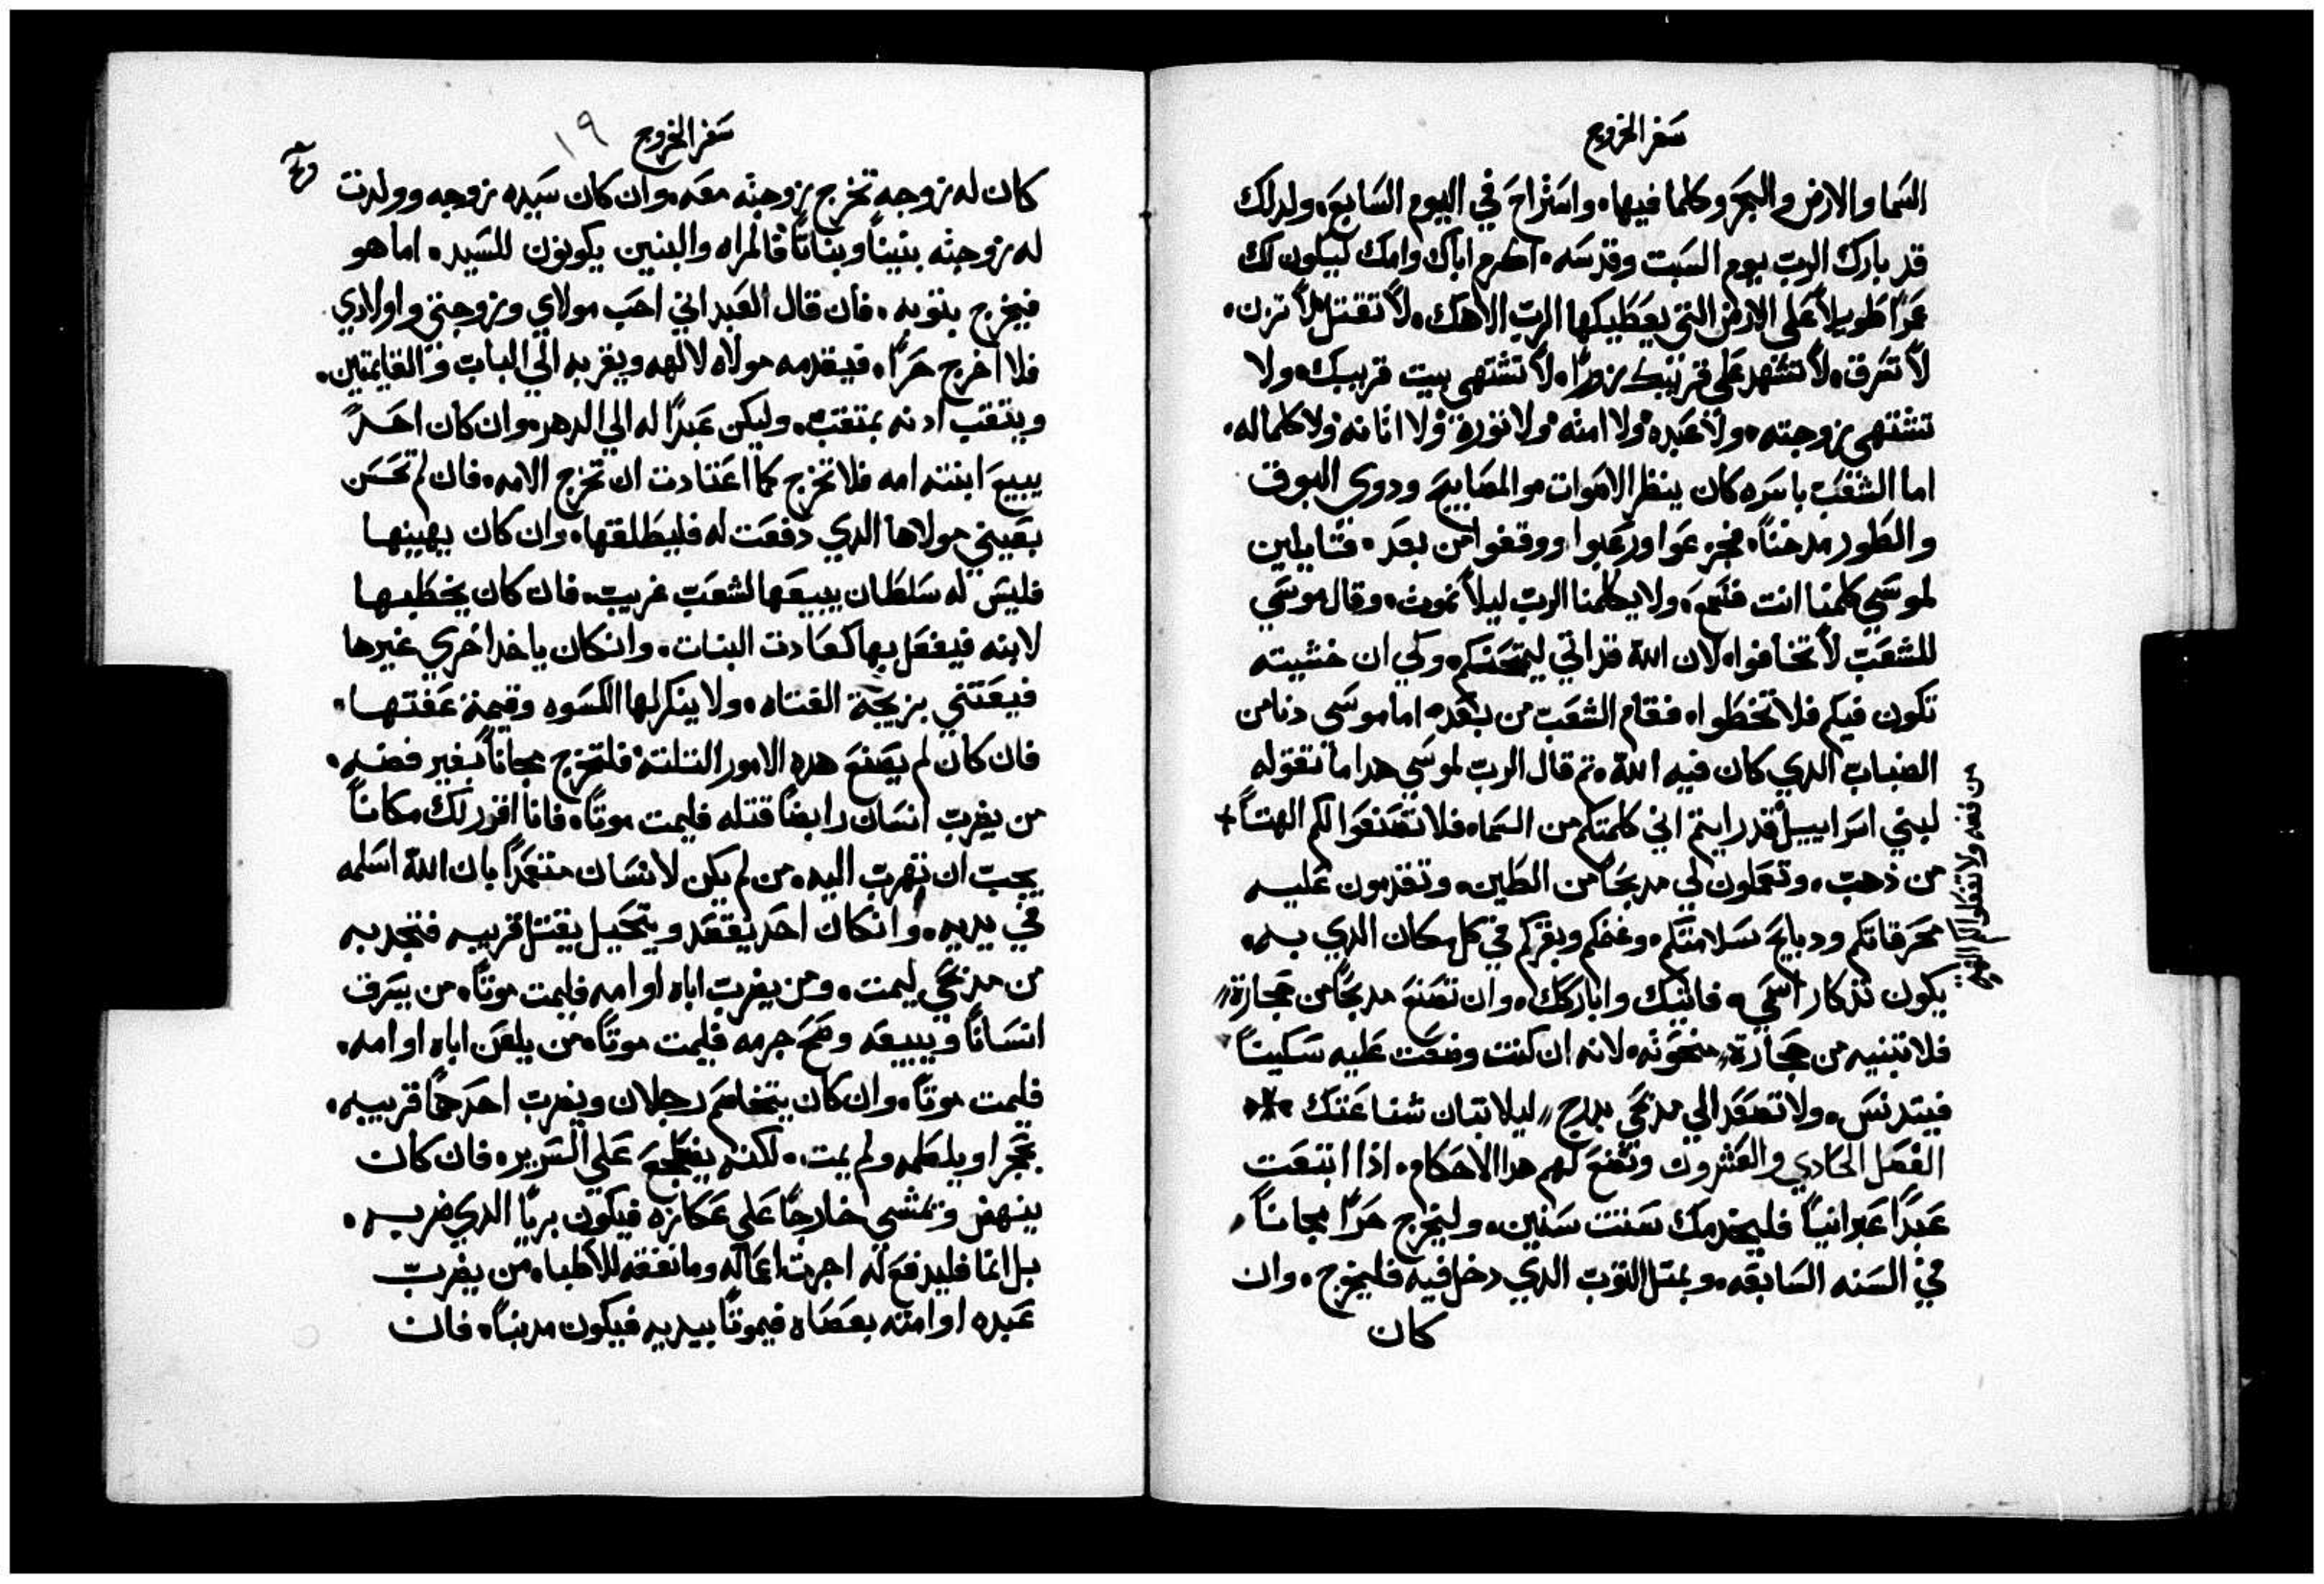 سفر الخروج
السما والارض والبحر وكلما فيها، واستراح في اليوم السابع، ولدلك
قد بارك الرب يوم السبت وقدسه، اكرم اباك وامك ليكون لك
عمرًا طويلًا على الارض التي يعطيكها الرب الاهك، لا تقتل لا تزن،
لا تسرق، لا تشهد على قريبك زورًا، لا تشتهي بيت قريبك، ولا
تشتهي زوجته، ولا عبده ولا امته ولا ثوره ولا اتانه ولا كلما له،
اما الشعب باسره كان ينظر الاصوات والمصابيح ودوي البوق
والطور مدخنًا، فجزعوا ورعبوا ووقفوا من بعد، قايلين
لموسي كلمنا انت فنسمع، ولا يكلمنا الرب ليلا نموت، وقال موسي
للشعب لا تخافوا، لان الله قد اتي ليمتحنكم، ولكي ان خشيته
تكون فيكم فلا تخطوا، فقام الشعب من بعد، اما موسي دنا من
الضباب الدي كان فيه الله، تم قال الرب لموسي هدا ما تقوله
لبني اسراييل قد رايتم اني كلمتكم من السما، فلا تصنعوا لكم الهتًا +
من فضه ولا تعملوا لكم الهة
من ذهب، وتعملون لي مدبحًا من الطين، وتقدمون عليه
محرقاتكم ودبايح سلامتكم، وغنمكم وبقركم في كل مكان الدي به
يكون تذكار اسمي، فاتيك واباركك، وان تصنع مدبحًا من حجارة
فلا تبنيه من حجارة منحوته، لانه ان كنت وضعت عليه سكينًا
فيتدنس، ولا تصعد الي مدبحي بدرج ليلا تبان شناعتك
الفصل الحادي والعشرون وتصنع لهم هدا الاحكام، اذا ابتعت
عبدًا عبرانيًا فليخدمك ستت سنين، وليخرج حرًا مجانًا
في السنه السابعه، وبمتل التوب الدي دخل فيه فليخرج، وان
كان
سفر الخروج ١٩
كان له زوجه تخرج زوجته معه، وان كان سيده زوجه وولدت
له زوجته بنينًا وبناتًا فالمراه والبنين يكونون للسيد، اما هو
فيخرج بتوبه، فان قال العبد اني احب مولاي وزوجتي واولادي
فلا اخرج حرًا، فيقدمه مولاه لالهه ويقربه الي الباب والقايمتين،
ويتقب ادنه بمتقب، وليكن عبدًا له الي الدهر، وان كان احدًا
يبيع ابنته امه فلا تخرج كما اعتادت ان تخرج الامه، فان لم تحسن
بعيني مولاها الدي دفعت له فليطلقها، وان كان يهينها
فليس له سلطان يبيعها لشعب غريب، فان كان يخطبها
لابنه فيفعل بها كعادت البنات، وانكان ياخد اخري غيرها
فيعتني بزيجة الفتاه، ولا ينكر لها الكسوه وقيمة عفتها،
فان كان لم يصنع هده الامور التلتة فلتخرج مجانًا بغير فضه،
من يضرب انسان رايضًا قتله فليمت موتًا، فانا افرز لك مكانًا
يجب ان تهرب اليه، من لم يكن لانسان متعمدًا بان الله اسلمه
في يديه، وانكان احد يقصد ويتحيل يقتل قريبه فتجدبه
من مدبحي ليمت، ومن يضرب اباه او امه فليمت موتًا، من يسرق
انسانًا ويبيعه وصح جرمه فليمت موتًا، من يلعن اباه او امه،
فليمت موتًا، وان كان يتخاصم رجلان ويضرب احدهما قريبه،
بحجر او بلكمه ولم يمت، لكنه يضطجع علي السرير، فان كان
ينهض ويمشي خارجًا علي عكازه فيكون بريًا الدي ضربه،
بل انما فليدفع له اجرت اعماله وما نفقه للاطباء، من يضرب
عبده او امته بعصاه فيموتا بيديه فيكون مدنبًا، فان